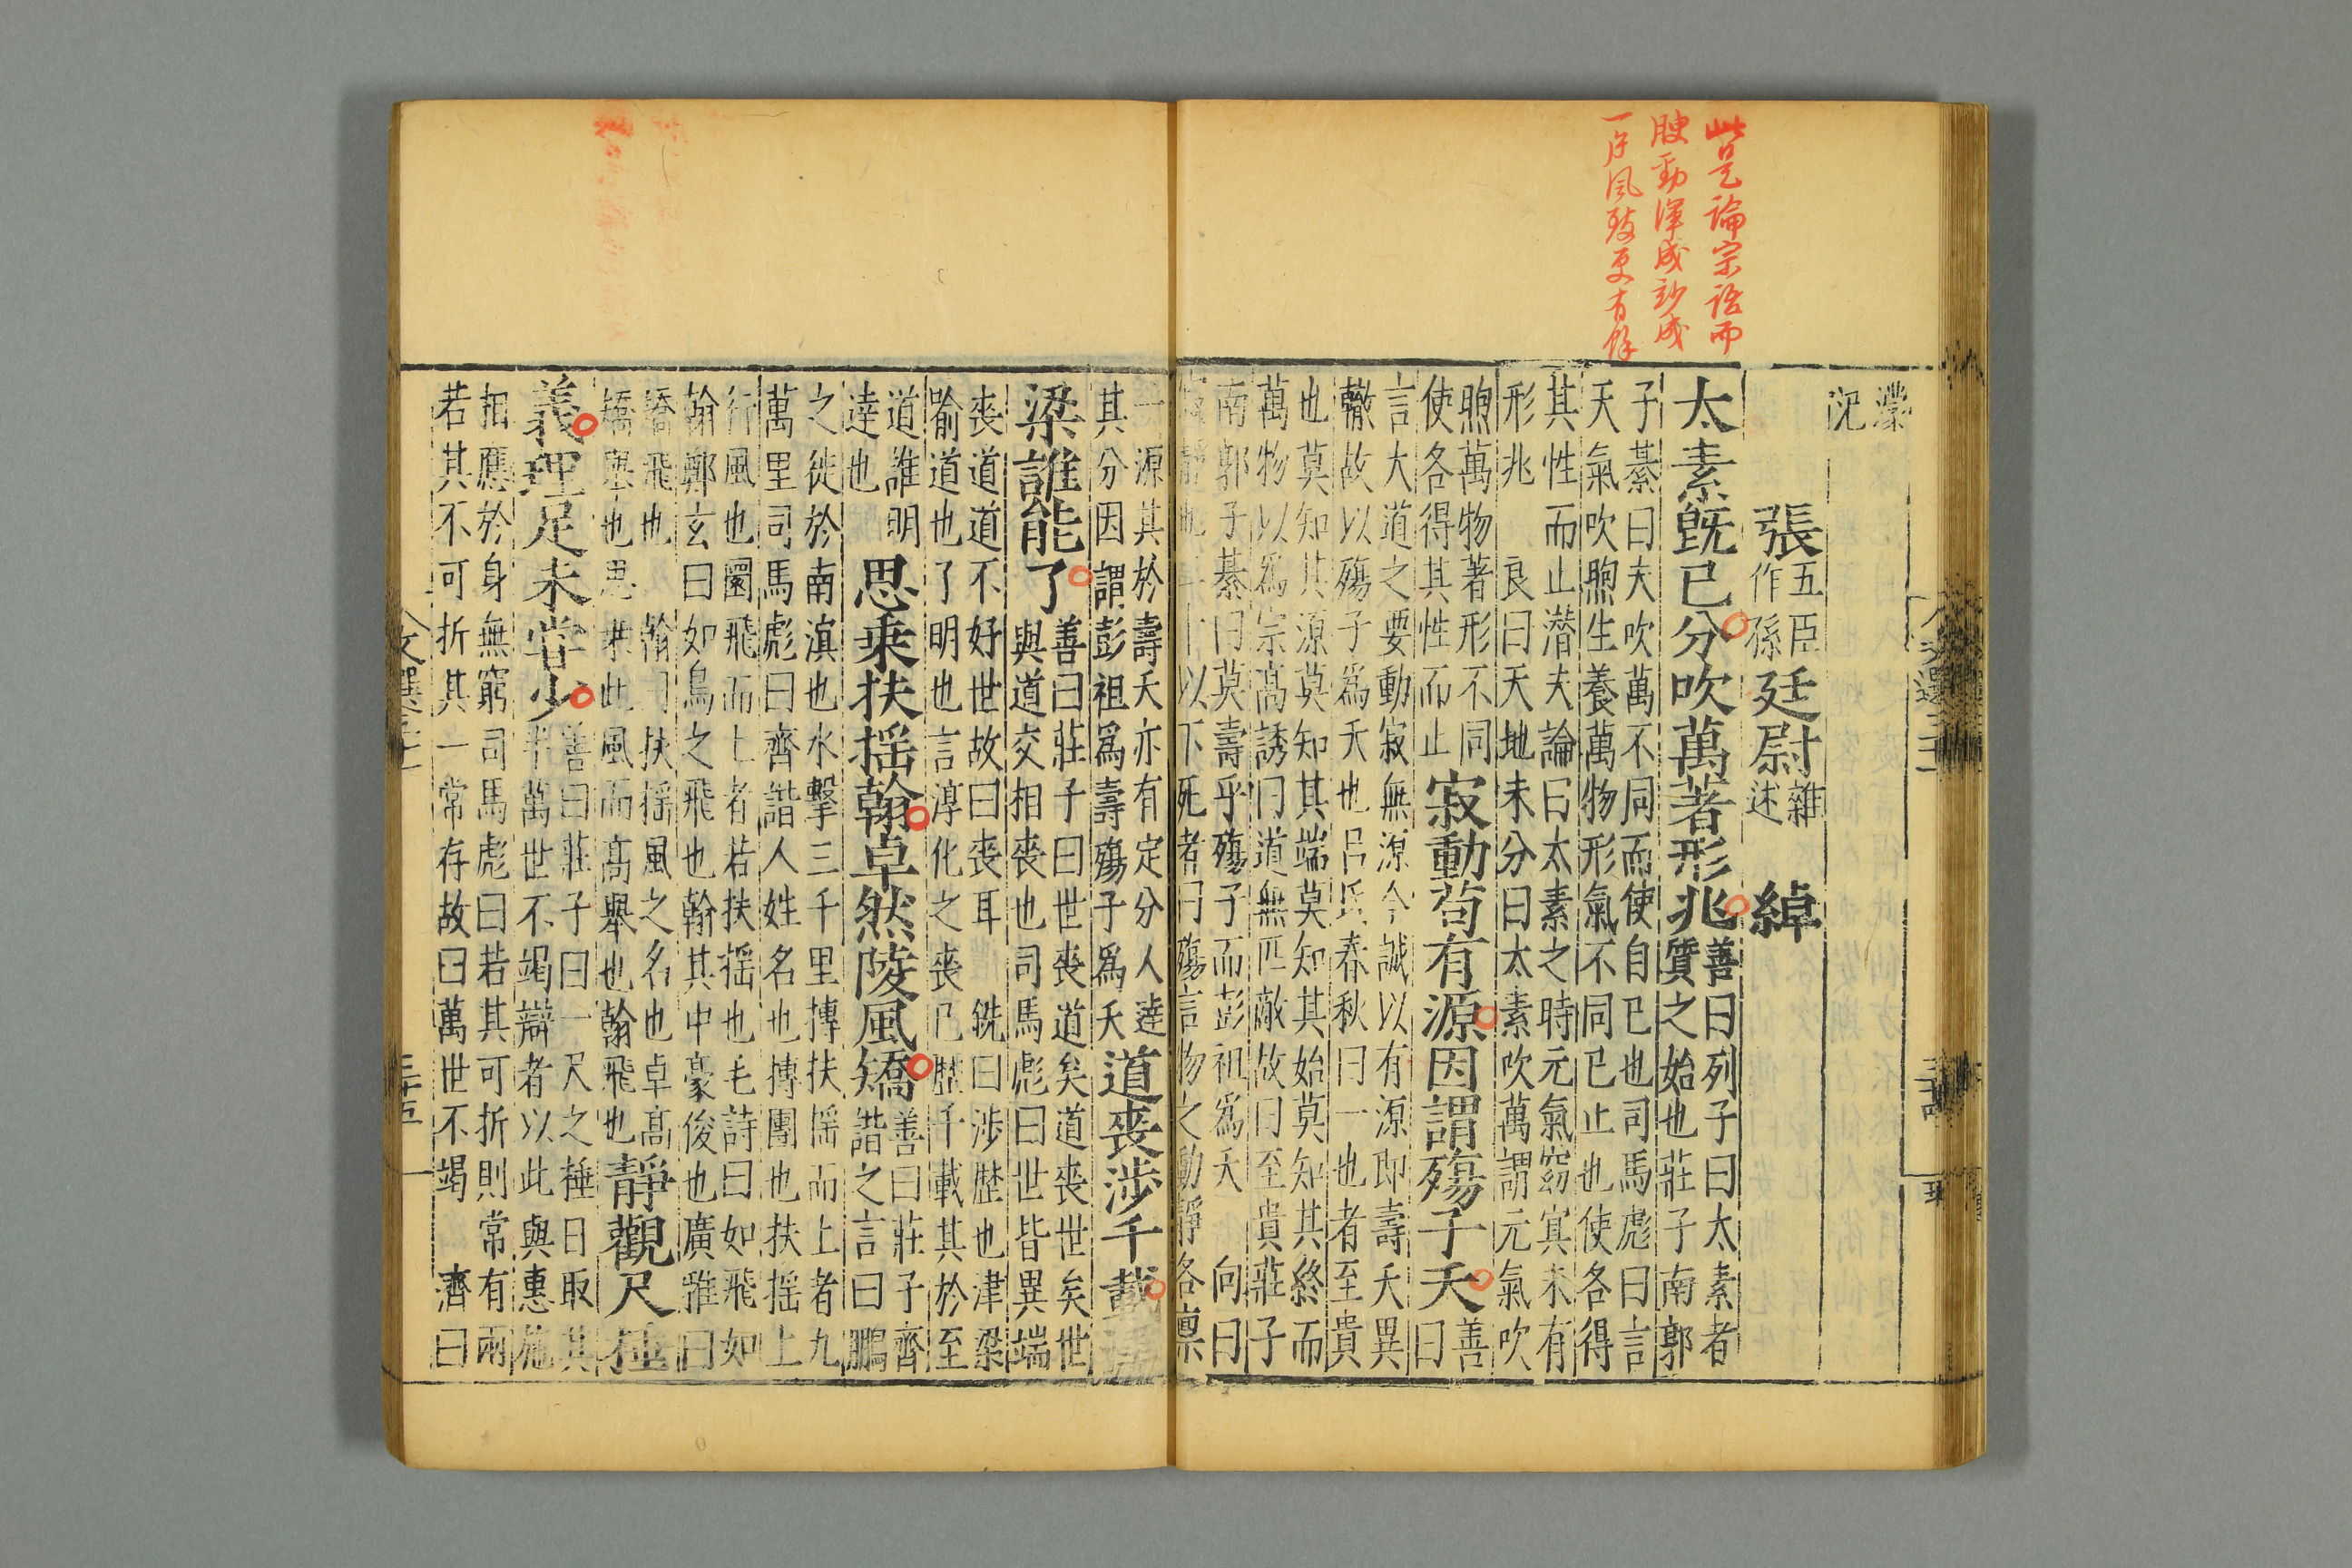 此是論宗語而
腴勁渾成
一片風致更有餘
濛
汜
張五臣作孫廷尉雜述 綽
太素旣已分吹萬著形兆善曰列子曰太素者
質之始也莊子南郭
子綦曰夫吹萬不同而使自已也司馬彪曰言
天氣吹煦生養萬物形氣不同已止也使各得
其性而止潜夫論曰太素之時元氣窈冥未有
形兆 良曰天地未分曰太素吹萬謂元氣吹
煦萬物著形不同
使各得其性而止
寂動苟有源因謂殤子夭善曰
言大道之要動寂無源今誠以有源即壽夭異
轍故以殤子爲夭也呂氏春秋曰一也者至貴
也莫知其源莫知其端莫知其始莫知其終而
萬物以爲宗高誘曰道無匹敵故曰至貴莊子
南郭子綦曰莫壽乎殤子而彭祖爲夭 向曰
寂靜也二十以下死者曰殤言物之動靜各禀
一源其於壽夭亦有定分人達
其分因謂彭祖爲壽殤子爲夭
道喪涉千載津
梁誰能了善曰莊子曰世喪道矣道喪世矣世
與道交相喪也司馬彪曰世皆異端
喪道道不好世故曰喪耳 銑曰涉歷也津梁
喻道也了明也言淳化之喪已歷千載其於至
道誰明
達也
思乘扶搖翰卓然陵風矯善曰莊子齊
諧之言曰鵬
之徙於南滇也水擊三千里摶扶搖而上者九
萬里司馬彪曰齊諧人姓名也摶團也扶搖上
行風也圜飛而上者若扶搖也毛詩曰如飛如
翰鄭玄曰如鳥之飛也翰其中豪俊也廣雅曰
矯飛也 翰曰扶搖風之名也卓高
矯舉也思乘此風而高舉也翰飛也
靜觀尺棰
義理足未嘗少善曰莊子曰一尺之捶日取其
半萬世不竭辯者以此與惠施
相應於身無窮司馬彪曰若其可折則常有兩
若其不可折其一常存故曰萬世不竭 濟曰
三十五